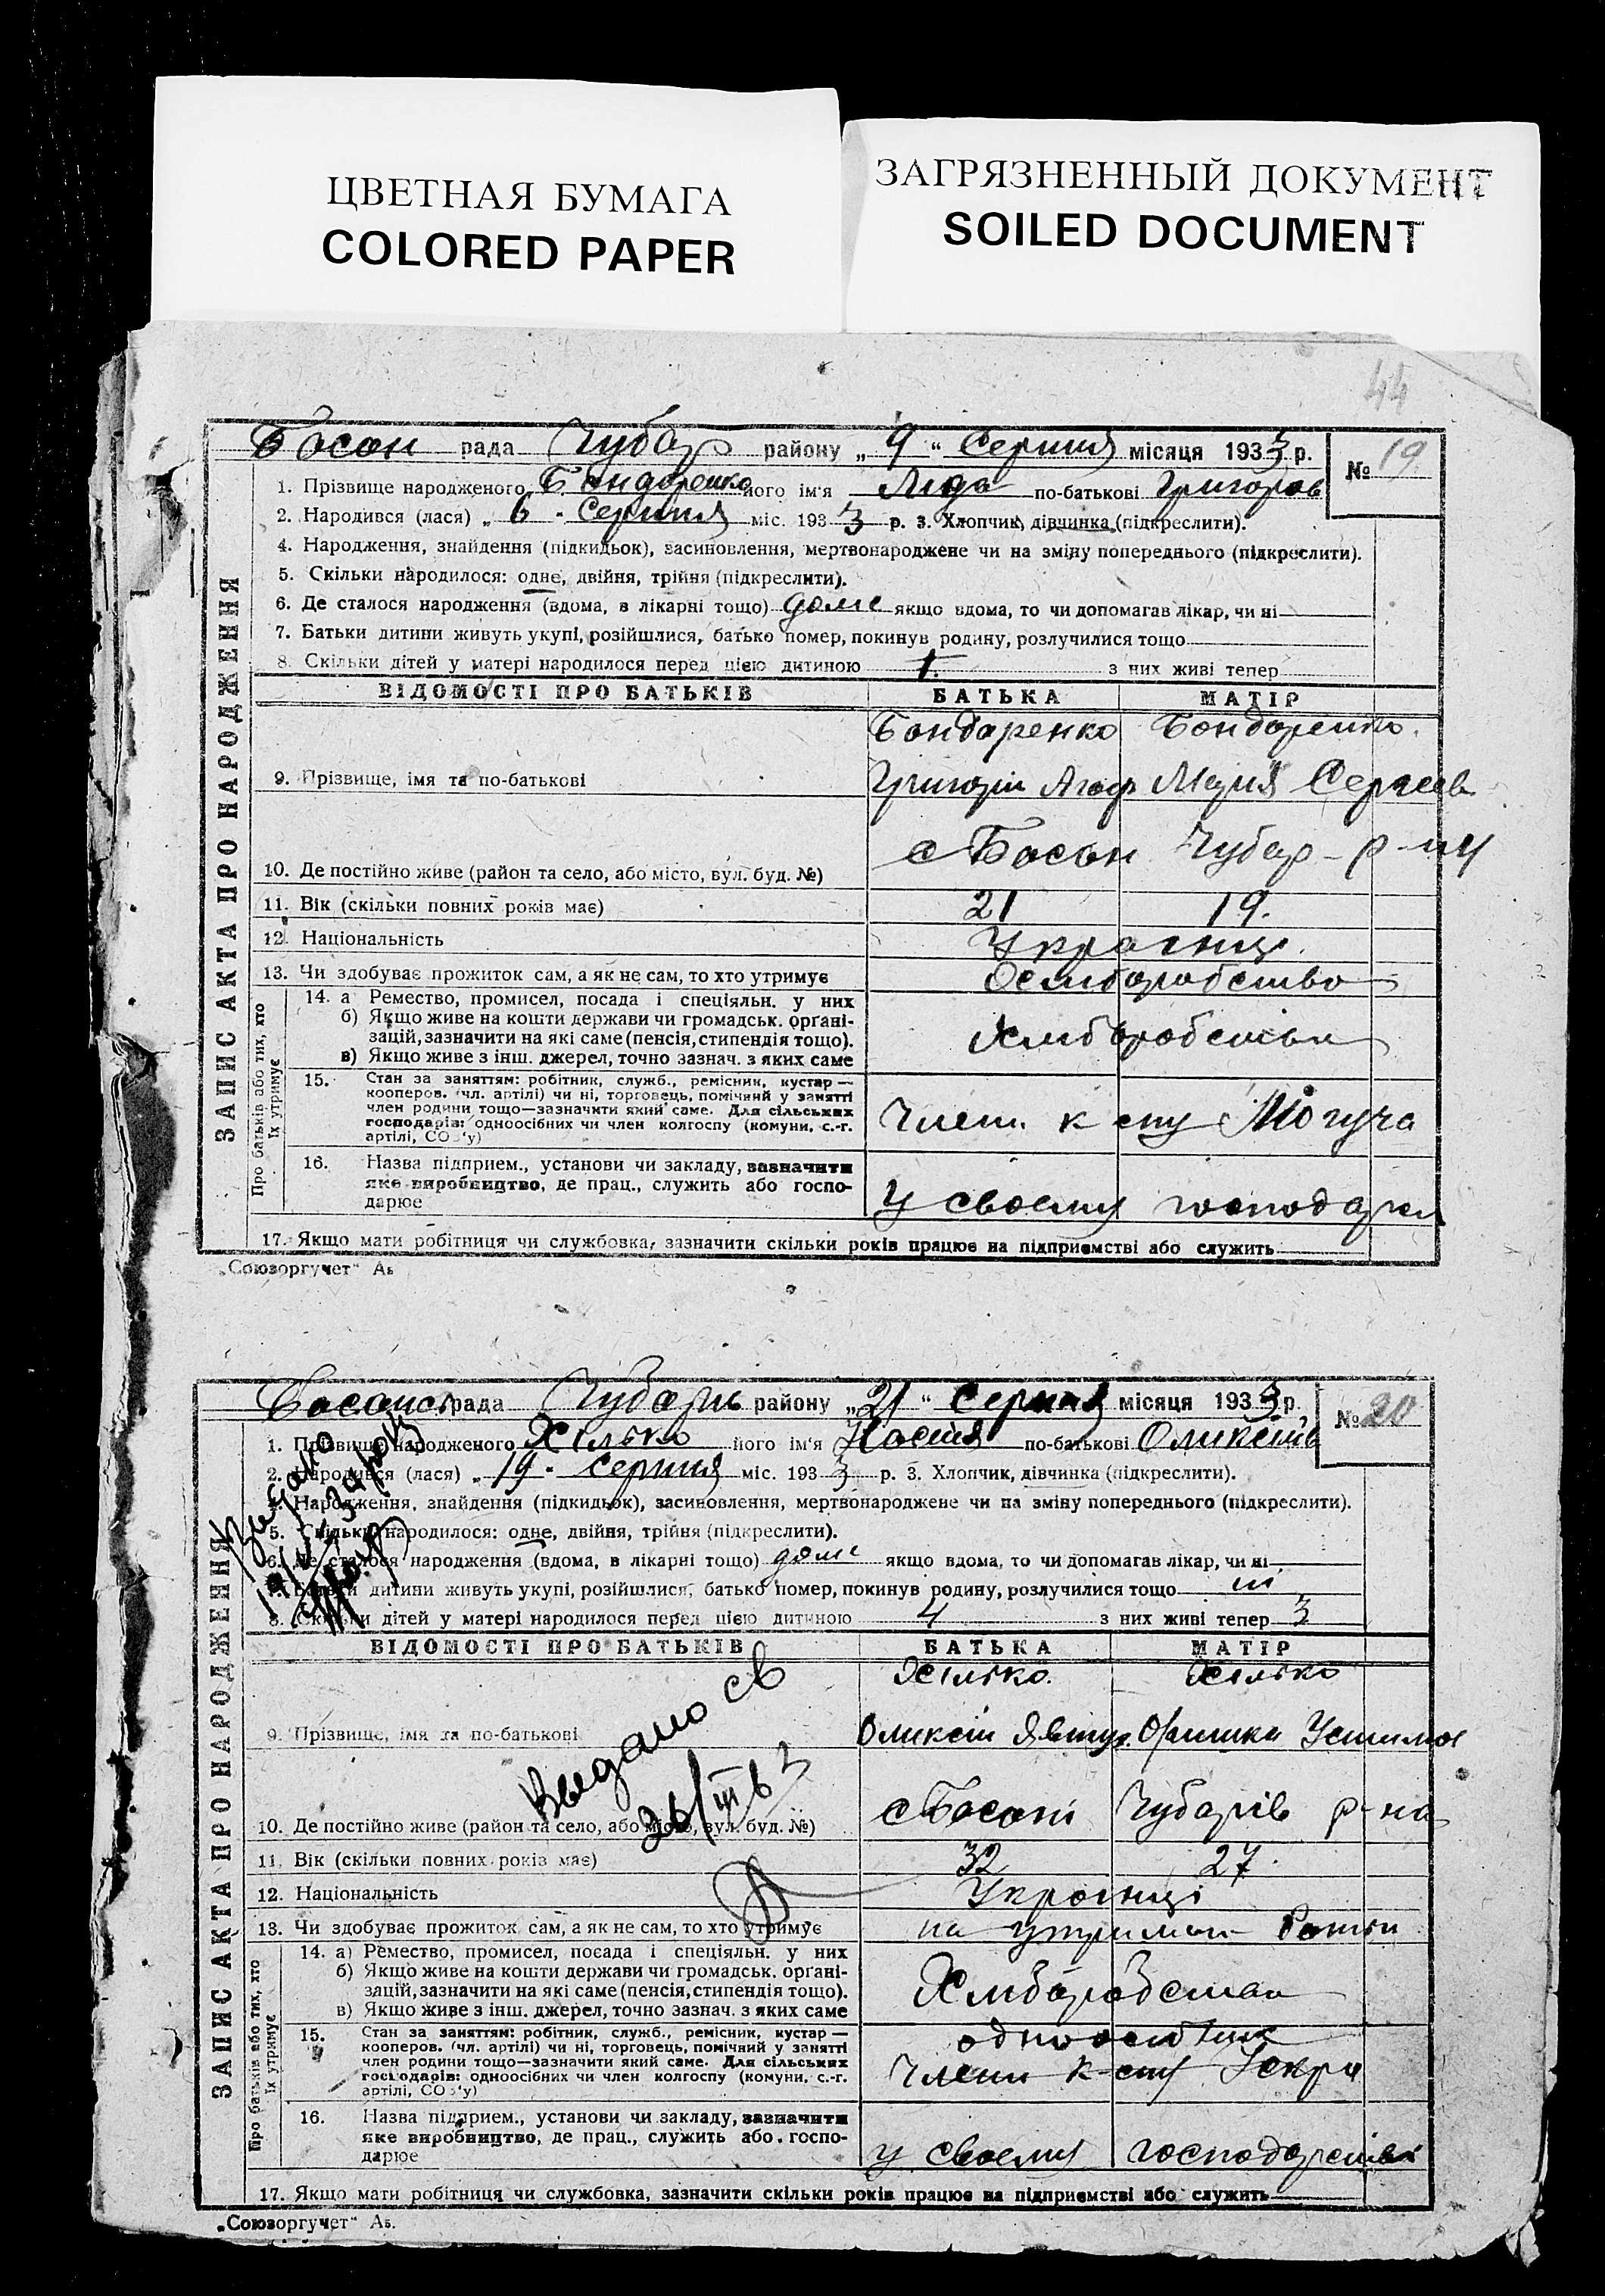 ЦВЕТНАЯ БУМАГА
COLORED PAPER
ЗАГРЯЗНЕННЫЙ ДОКУМЕНТ
SOILED DOCUMENT
44
Босан рада Чубар району „9“ Серпня місяця 1933 р. № 19
1. Прізвище народженого Бондаренко його ім'я Ліда по-батькові Григоров
2. Народився (лася) „6“ Серпня міс. 1933 р. 3. Хлопчик, дівчинка (підкреслити).
4. Народження, знайдення (підкидьок), засиновлення, мертвонароджене чи на зміну попереднього (підкреслити).
5. Скільки народилося: одне, двійня, трійня (підкреслити).
6. Де сталося народження (вдома, в лікарні тощо) дома якщо вдома, то чи допомагав лікар, чи ні
7. Батьки дитини живуть укупі, розійшлися, батько помер, покинув родину, розлучилися тощо
8. Скільки дітей у матері народилося перед цією дитиною 1. з них живі тепер
ЗАПИС АКТА ПРО НАРОДЖЕННЯ
ВІДОМОСТІ ПРО БАТЬКІВ БАТЬКА МАТІР
Бондаренко Бондаренко
9. Прізвище, імя та по-батькові Григорій Агаф Марія Сергеев
10. Де постійно живе (район та село, або місто, вул. буд. №) с Босан Чубар р-ну
11. Вік (скільки повних років має) 21 19.
12. Національність Українці.
13. Чи здобуває прожиток сам, а як не сам, то хто утримує
Про батьків або тих, хто їх утримує
14. а Ремество, промисел, посада і спеціяльн. у них
б) Якщо живе на кошти держави чи громадськ. органі-
зацій, зазначити на які саме (пенсія, стипендія тощо).
в) Якщо живе з інш. джерел, точно зазнач. з яких саме
15. Стан за заняттям: робітник, служб., ремісник, кустар —
кооперов. (чл. артілі) чи ні, торговець, помічний у занятті
член родини тощо—зазначити який саме. Для сільських
господарів: одноосібних чи член колгоспу (комуни, с.-г.
артілі, СОЗ'у)
Член к-спу Могуча
16. Назва підприєм., установи чи закладу, зазначити
яке виробництво, де прац., служить або госпо-
дарює
у своему
17. Якщо мати робітниця чи службовка, зазначити скільки років працює на підприємстві або служить
„Союзоргучет“ Аб
Босанськ рада Чубарь району „21“ Серпня місяця 1933 р. № 20
1. Прізвище народженого Хілько його ім'я Настя по-батькові Олексіїв
2. Народився (лася) „19“ серпня міс. 1933 р. 3. Хлопчик, дівчинка (підкреслити).
4. Народження, знайдення (підкидьок), засиновлення, мертвонароджене чи на зміну попереднього (підкреслити).
5. Скільки народилося: одне, двійня, трійня (підкреслити).
6. Де сталося народження (вдома, в лікарні тощо) дома якщо вдома, то чи допомагав лікар, чи ні
7. Батьки дитини живуть укупі, розійшлися, батько помер, покинув родину, розлучилися тощо ні
8. Скільки дітей у матері народилося перед цією дитиною 4 з них живі тепер 3
Видано
ЗАПИС АКТА ПРО НАРОДЖЕННЯ
ВІДОМОСТІ ПРО БАТЬКІВ БАТЬКА МАТІР
Хілько. Хілько
Выдано св
9. Прізвище, імя та по-батькові Олексій Явтух. Оришка Устимов
26/III 63
10. Де постійно живе (район та село, або місто, вул. буд. №) с Босані Чубарів р-на
11. Вік (скільки повних років має) 32 27.
12. Національність Українці
13. Чи здобуває прожиток сам, а як не сам, то хто утримує на утриман
Про батьків або тих, хто їх утримує
14. а) Ремество, промисел, посада і спеціяльн. у них
б) Якщо живе на кошти держави чи громадськ. органі-
зацій, зазначити на які саме (пенсія, стипендія тощо).
в) Якщо живе з інш. джерел, точно зазнач. з яких саме
15. Стан за заняттям: робітник, служб., ремісник, кустар —
кооперов. (чл. артілі) чи ні, торговець, помічний у занятті
член родини тощо—зазначити який саме. Для сільських
господарів: одноосібних чи член колгоспу (комуни, с.-г.
артілі, СОЗ'у)
Члени к-спу Іскра
16. Назва підприєм., установи чи закладу, зазначити
яке виробництво, де прац., служить або госпо-
дарює
у своему господарстві
17. Якщо мати робітниця чи службовка, зазначити скільки років працює на підприємстві або служить
„Союзоргучет“ Аб.